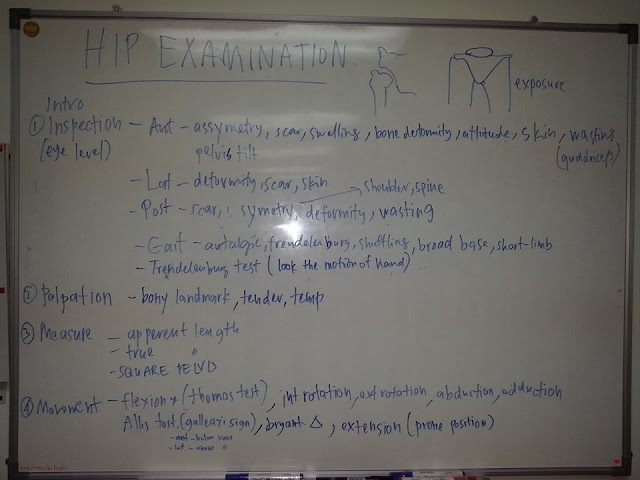 HIP EXAMINATION
exposure
Intro
① Inspection - Ant - assymetry, scar, swelling, bone deformity, attitude, skin, wasting
(eye level) pelvis tilt (quadriceps)
- Lat - deformity, scar, skin
shoulder, spine
- Post - scar, symetry, deformity, wasting
- Gait - antalgic, trendelenburg, shuffling, broad base, short-limb
- Trendelenburg test (look the motion of hand)
② Palpation - bony landmark, tender, temp
③ Measure - apperent length
- true "
- SQUARE PELVIS
④ Movement - flexion * (thomas test), int rotation, ext rotation, abduction, adduction
Allis test (galleazi sign), bryant Δ, extension (prone position)
- ant - below knee
- lat - above "